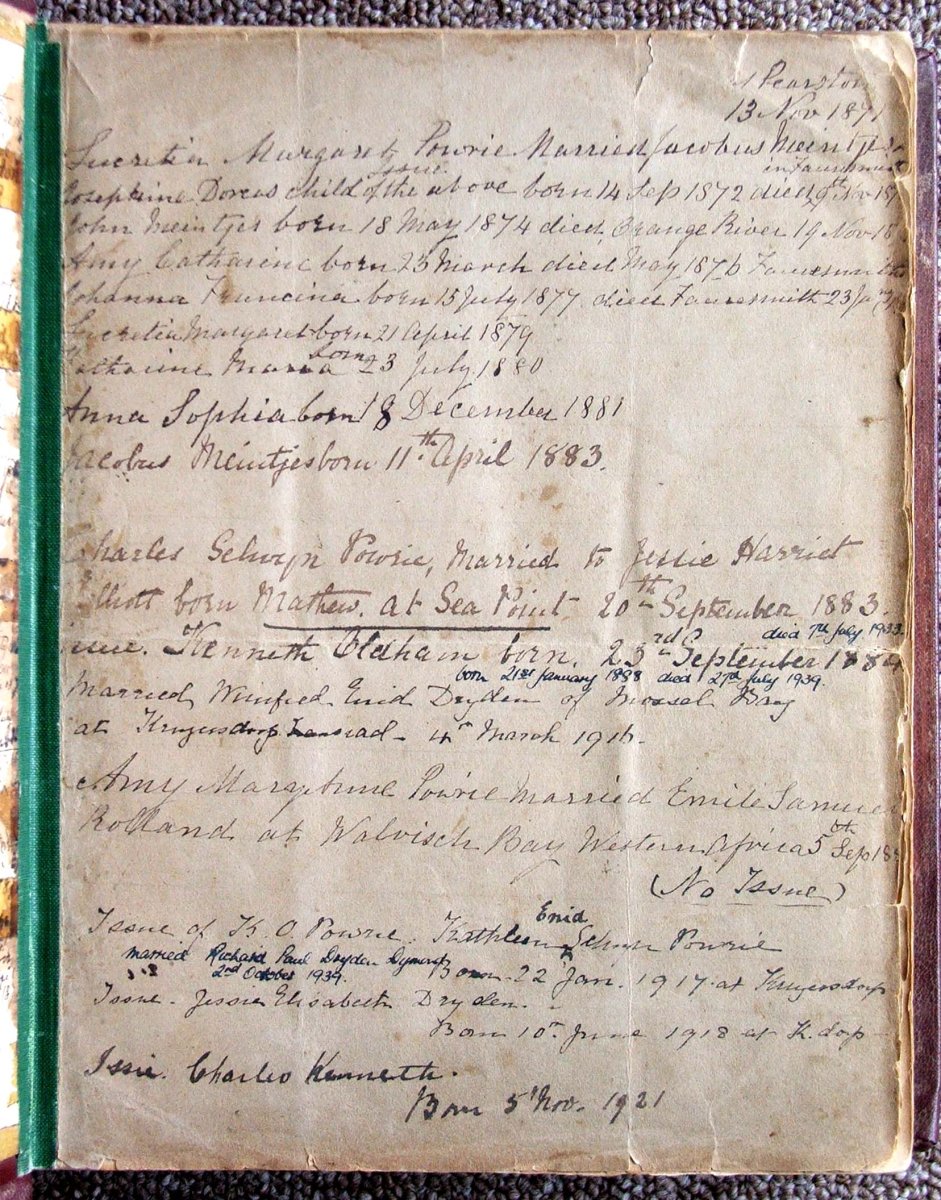 Pearston
13 Nov 1871
Lucretia Margaret Powrie Married Jacobus Meintjes
Issue. in Fauresmith
Josephine Dorcas child of the above born 14 Sep 1872 died 9th Nov 187
John Meintjes born 18 May 1874 died Orange River 19 Nov 18
Amy Catharine born 23 March died May 1876 Fauresmith
Johanna Francina born 15 July 1877 died Fauresmith 23 Jan
Lucretia Margaret born 21 April 1879
Catharine Maria born 23 July 1880
Anna Sophia born 18 December 1881
Jacobus Meintjes born 11th April 1883.
Charles Selwyn Powrie, Married to Jessie Harriet
Elliott born Mathew. at Sea Point 20th September 1883.
died 7th July 1933.
Issue. Kenneth Oldham born. 23rd September 1884
born 21st January 1888 died 27th July 1939.
Married Winifred Enid Dryden of Mossel Bay
at Krugersdorp Transvaal - 4th March 1916.
Amy Marytune Powrie Married Emile Samuel
Rolland at Walvisch Bay Western Africa 5th Sep 188
(No Issue)
Enid
Issue of K. O. Powrie. Kathleen Selwyn Powrie
married Richard Paul Dryden Dymond
2nd October 1939.
Born 22 Jan. 1917 at Krugersdorp
Issue. Jessie Elisabeth Dryden.
Born 10th June 1918 at K. dop
Issie. Charles Kenneth.
Born 5th Nov. 1921